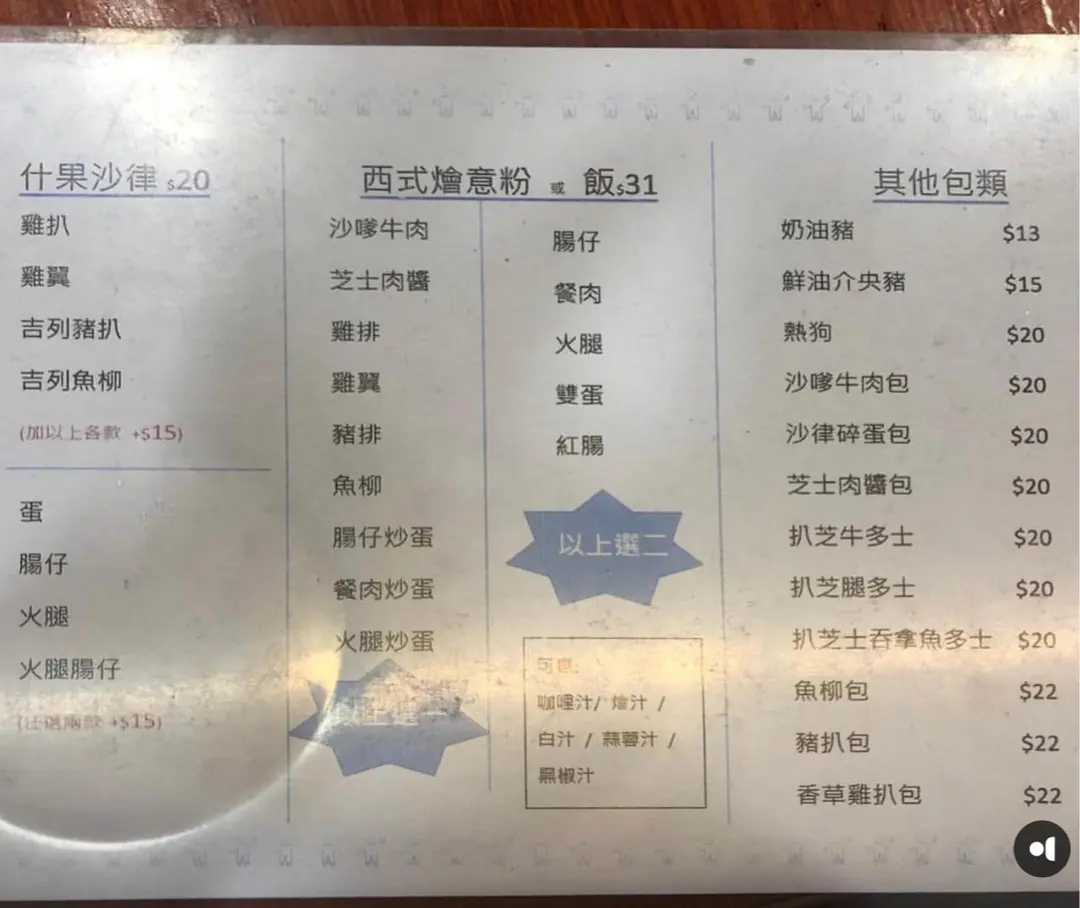 什果沙律 $20
雞扒
雞翼
吉列豬扒
吉列魚柳
(加以上各款 +$15)
蛋
腸仔
火腿
火腿腸仔
(任選兩款 +$15)
西式燴意粉 或 飯$31
沙嗲牛肉
芝士肉醬
雞排
雞翼
豬排
魚柳
腸仔炒蛋
餐肉炒蛋
火腿炒蛋
腸仔
餐肉
火腿
雙蛋
紅腸
以上選二
咖哩汁/ 燴汁 /
白汁 / 蒜蓉汁 /
黑椒汁
其他包類
奶油豬 $13
鮮油介央豬 $15
熱狗 $20
沙嗲牛肉包 $20
沙律碎蛋包 $20
芝士肉醬包 $20
扒芝牛多士 $20
扒芝腿多士 $20
扒芝士吞拿魚多士 $20
魚柳包 $22
豬扒包 $22
香草雞扒包 $22